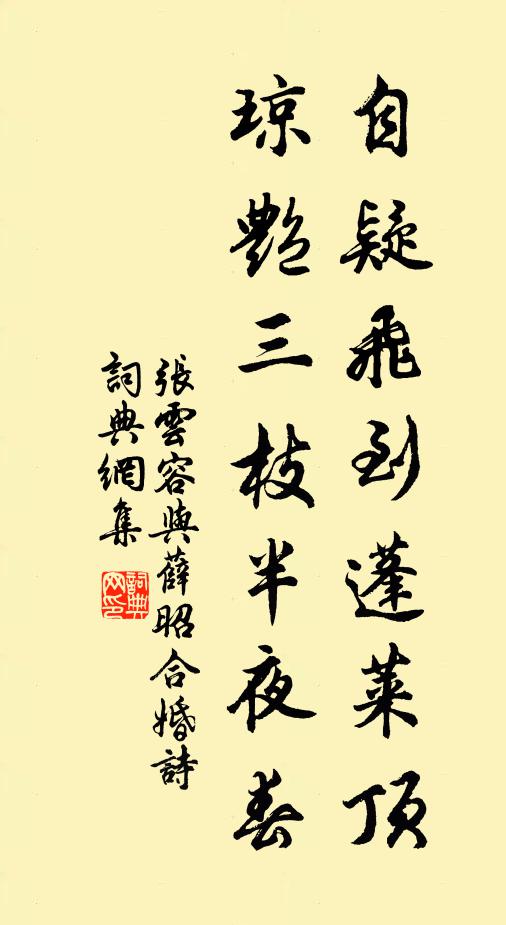 自疑飛到蓬萊頂
琼艷三枝半夜春
張雲容與薛昭合婚詩
詞典網集
詞典网印